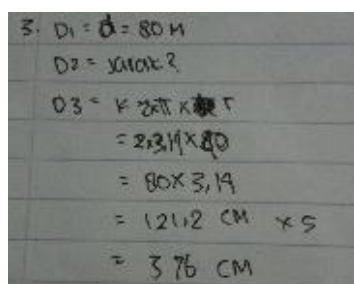 3. D1 = d = 80 M
D2 = Jarak?
D3 = K 2π × r
= 2×3,14×80
= 80×3,14
= 121,2 CM ×5
= 376 CM